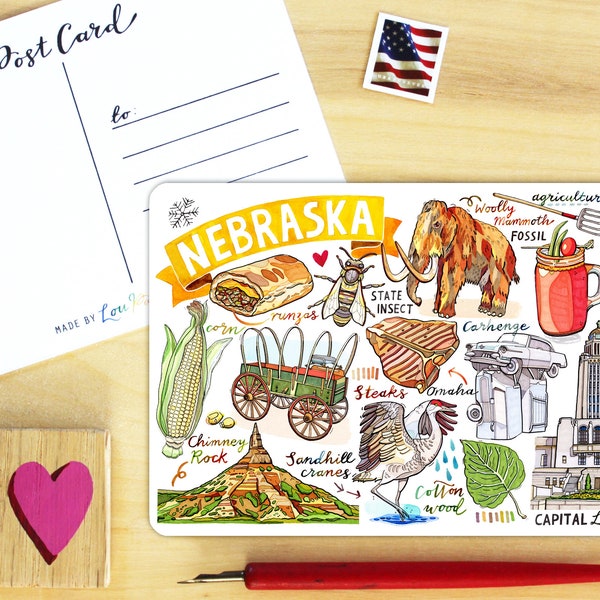 Post Card
to:
MADE BY Lou
NEBRASKA
Woolly
Mammoth
FOSSIL
agriculture
corn
runzas
STATE
INSECT
Carhenge
Steaks
Omaha
Chimney
Rock
Sandhill
cranes
Cotton
wood
CAPITAL